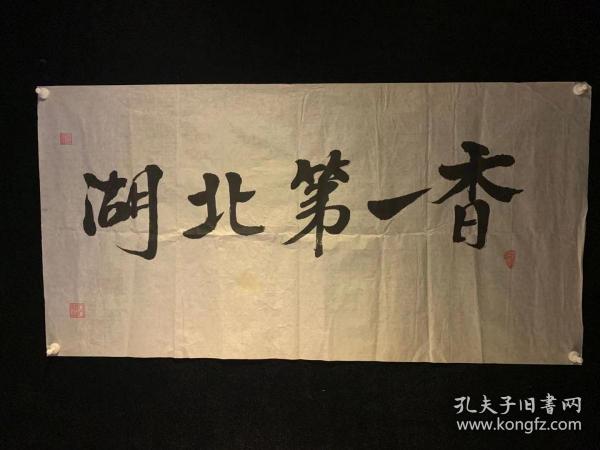 湖北第一香
孔夫子旧書网
www.kongfz.com